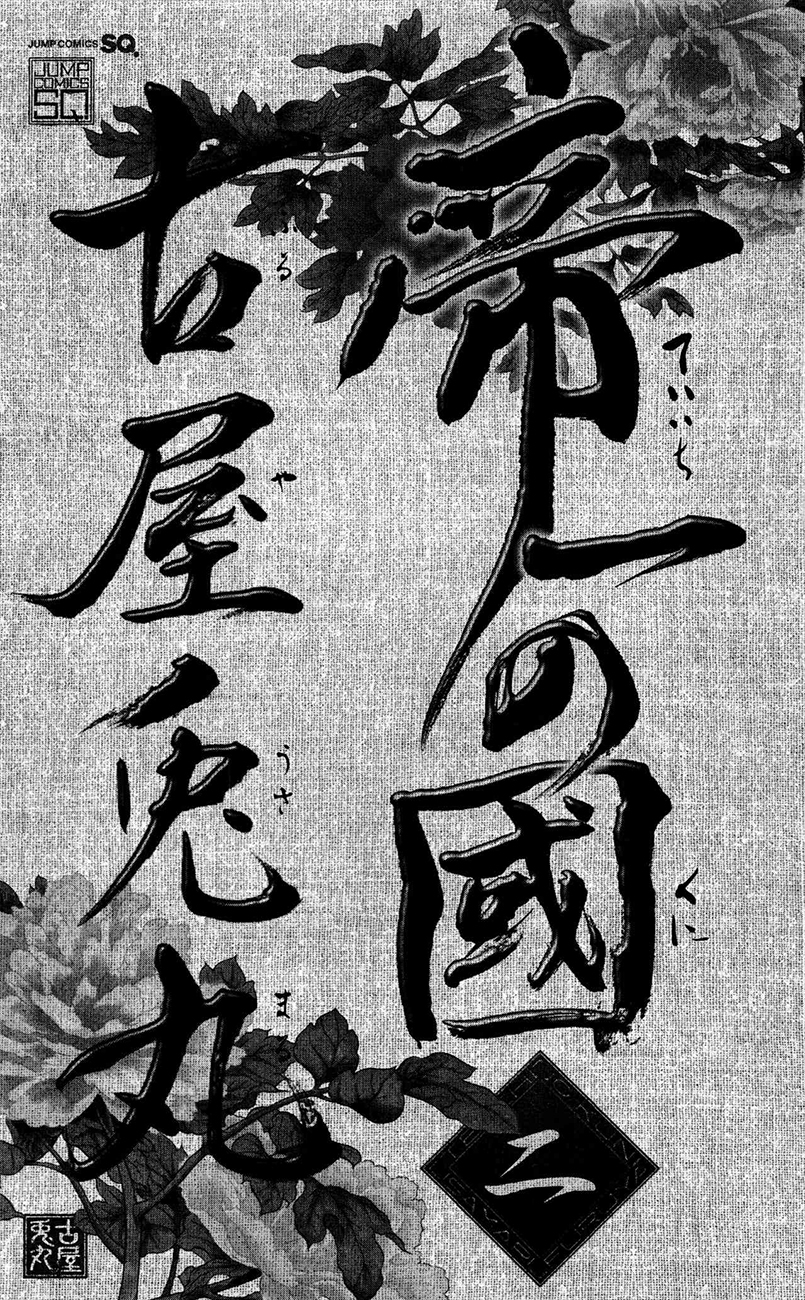 JUMP COMICS SQ.
JUMP
COMICS
SQ
帝一の國
ていいち
くに
二
古屋兎丸
る
や
うさ
ま
古屋
兎丸